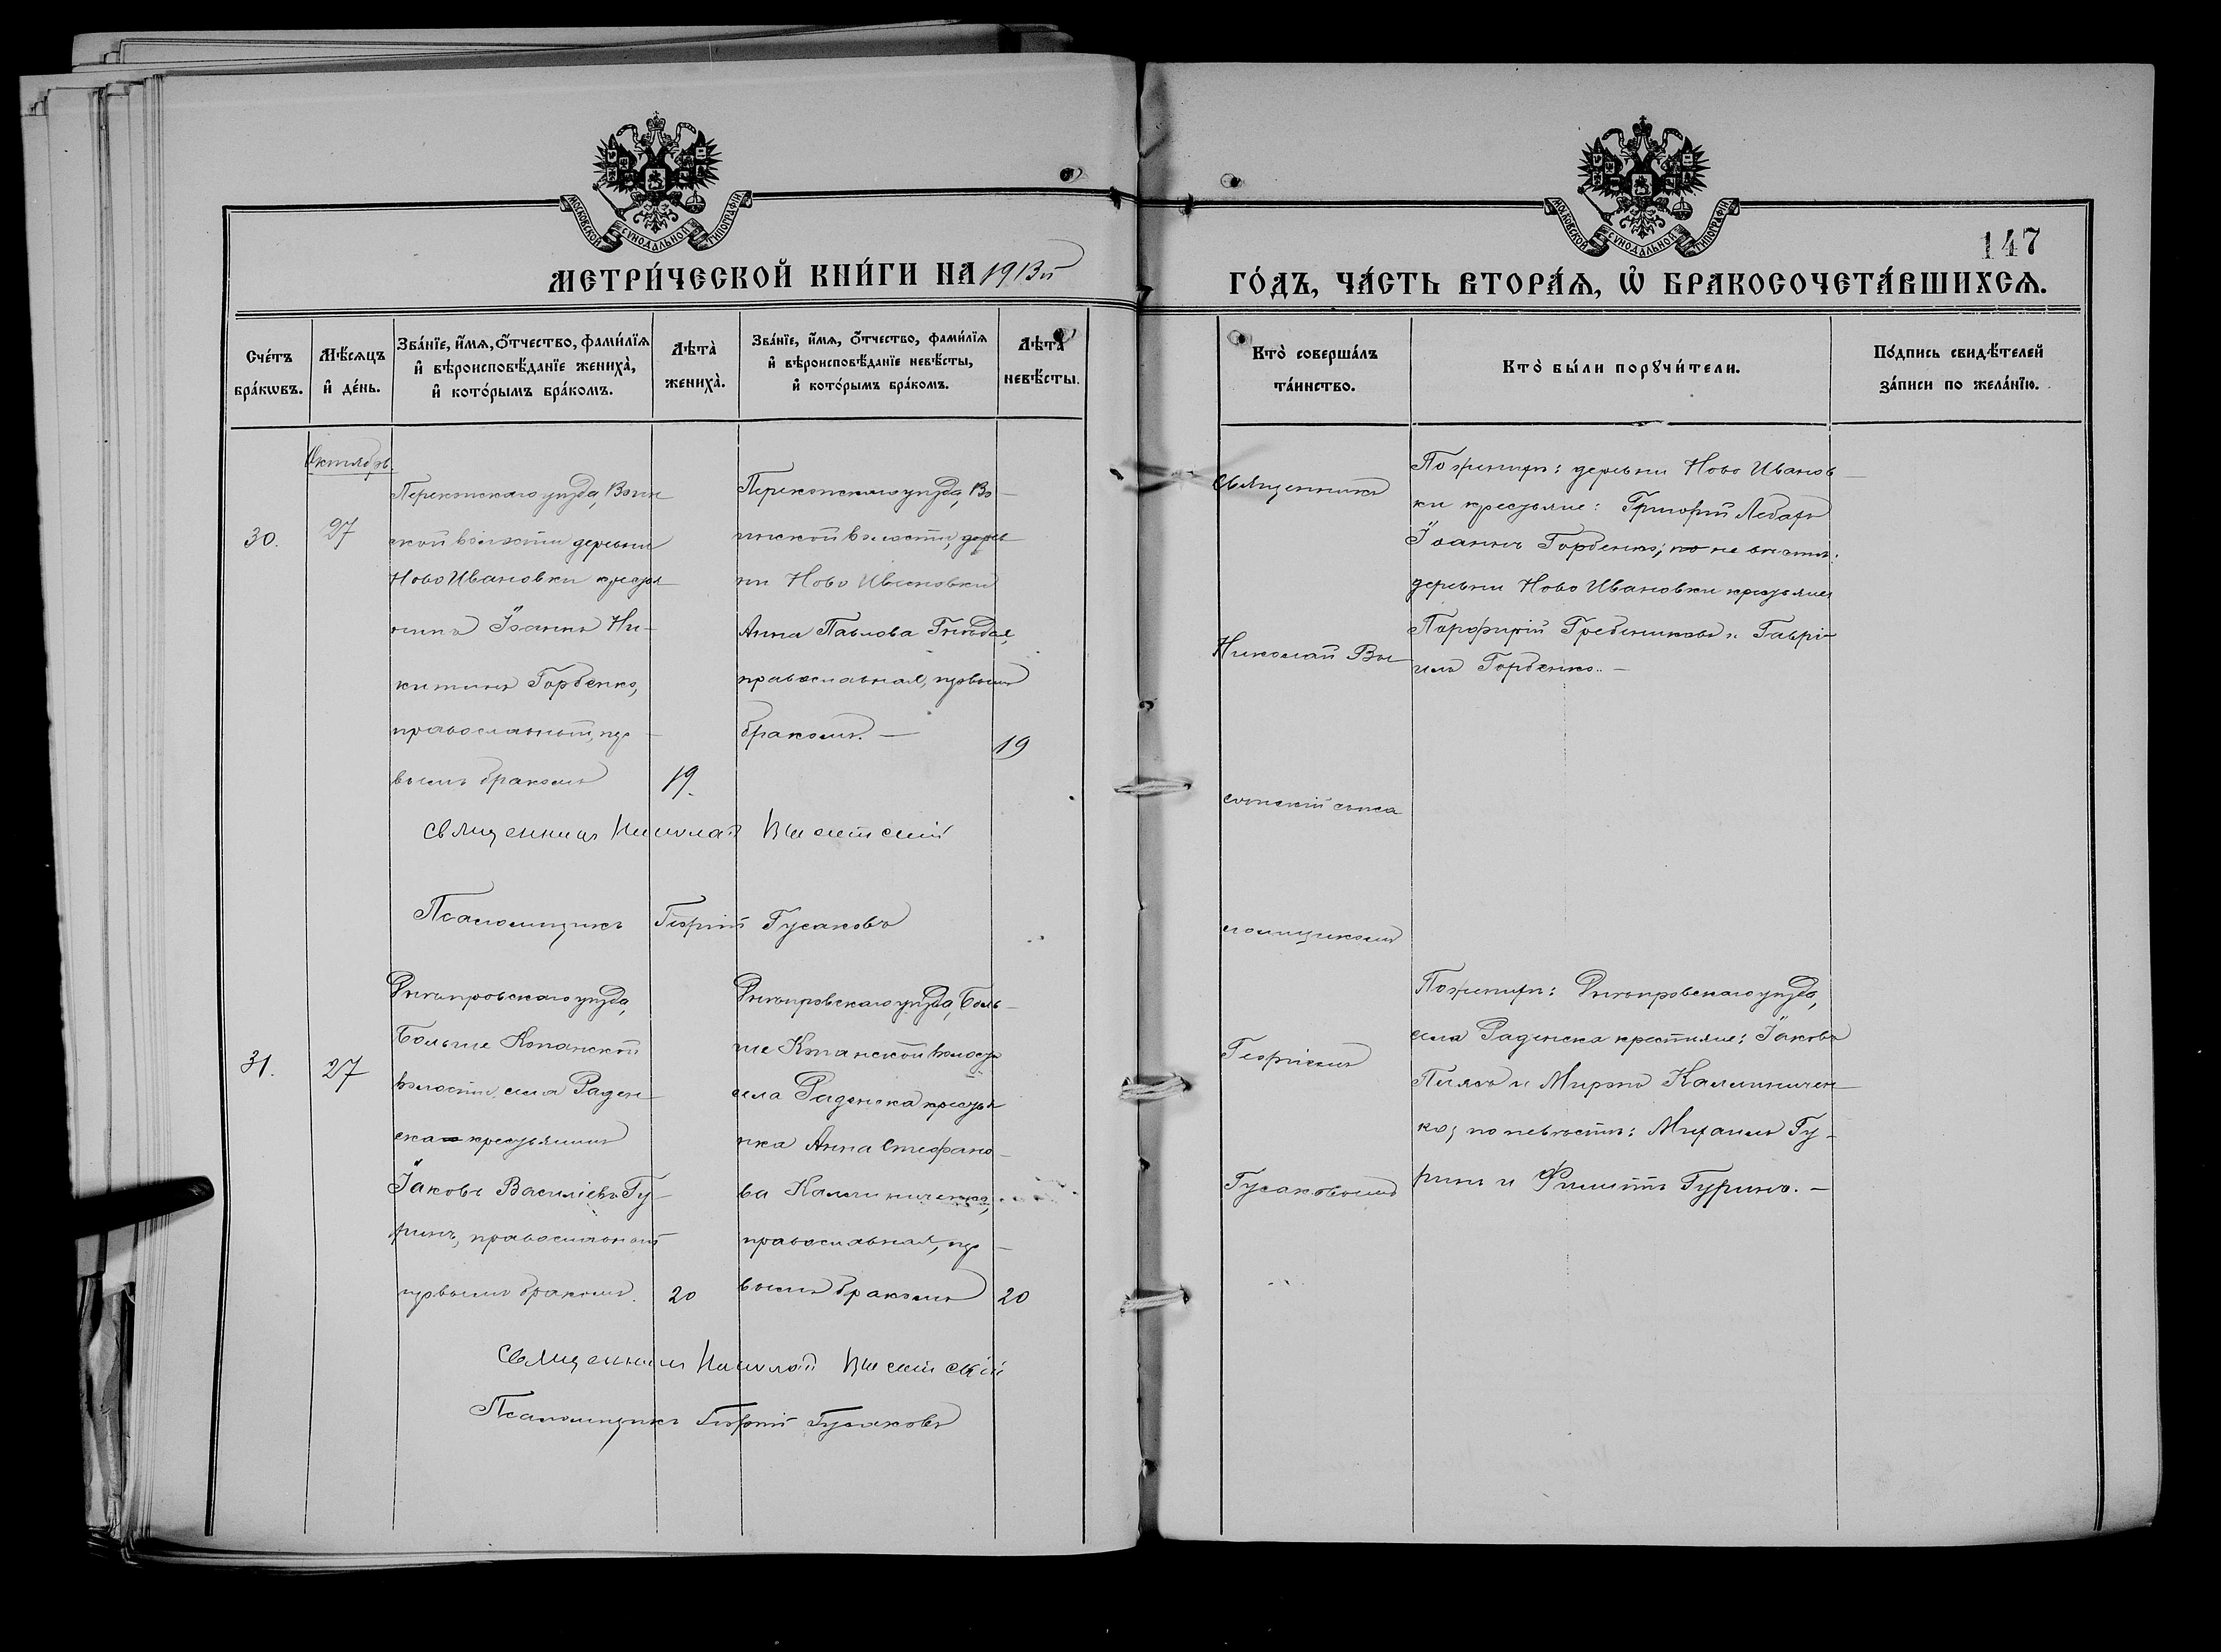 МОСКОВСКОЙ СѴНОДАЛЬНОЙ ТИПОГРАФІИ
МЕТРИ́ЧЕСКОЙ КНИ́ГИ НА 1913й
Сче́тъ бра́кѡвъ.
Мѣ́сяцъ и҆ де́нь.
Зва́нїе, и҆́мѧ, ѻ҆́тчество, фами́лїѧ
и҆ вѣроисповѣ́данїе жениха̀,
и҆ кото́рымъ бра́комъ.
Лѣта̀ жениха̀.
Зва́нїе, и҆́мѧ, ѻ҆́тчество, фами́лїѧ
и҆ вѣроисповѣ́данїе невѣ́сты,
и҆ кото́рымъ бра́комъ.
Лѣта̀ невѣ́сты.
Октябрь.
30.
27
Перекопскаго уѣзда, Воин
ской волости деревни
Ново Ивановки кресть
янинъ Іоаннъ Ни-
китинъ Горбенко,
православный, пер-
вымъ бракомъ
19.
Перекопскаго уѣзда, Во-
инской волости, дерев
ни Ново Ивановки
Анна Павлова
православная, первымъ
бракомъ. —
19
Священникъ Николай
Псаломщикъ Георгій Гусаковъ
31.
27
Днѣпровскаго уѣзда,
Больше Копанской
волости, села Раден
ска крестьянинъ
Іаковъ Василіевъ Гу-
ринъ, православный
первымъ бракомъ.
20
Днѣпровскаго уѣзда, Боль-
ше Копанской волости
села Раденска крестья
нка Анна Стефано-
ва Каллиниченко,
православная, пер-
вымъ бракомъ
20
Священникъ Николай
Псаломщикъ Георгій Гусаковъ
МОСКОВСКОЙ СѴНОДАЛЬНОЙ ТИПОГРАФІИ
147
ГО́ДЪ, ЧА́СТЬ ВТОРА́Ѧ, Ѡ҆ БРАКОСОЧЕТА́ВШИХСѦ.
Кто̀ соверша́лъ
та́инство.
Кто̀ бы́ли порꙋчи́тели.
По́дпись свидѣ́телей
за́писи по жела́нїю.
Священникъ
Николай
съ пса
ломщикомъ
Георгіемъ
Гусаковымъ
По женихѣ: деревни Ново Иванов-
ки крестьяне: Григорій
Іоаннъ Горбенко; по невѣстѣ:
деревни Ново Ивановки крестьяне
Порфирій Гребениковъ и Гаврі-
илъ Горбенко. —
По женихѣ: Днѣпровскаго уѣзда,
села Раденска крестьяне: Іаковъ
и Миронъ Каллиничен-
ко; по невѣстѣ: Михаилъ Гу-
ринъ и Филиппъ Гуринъ. —